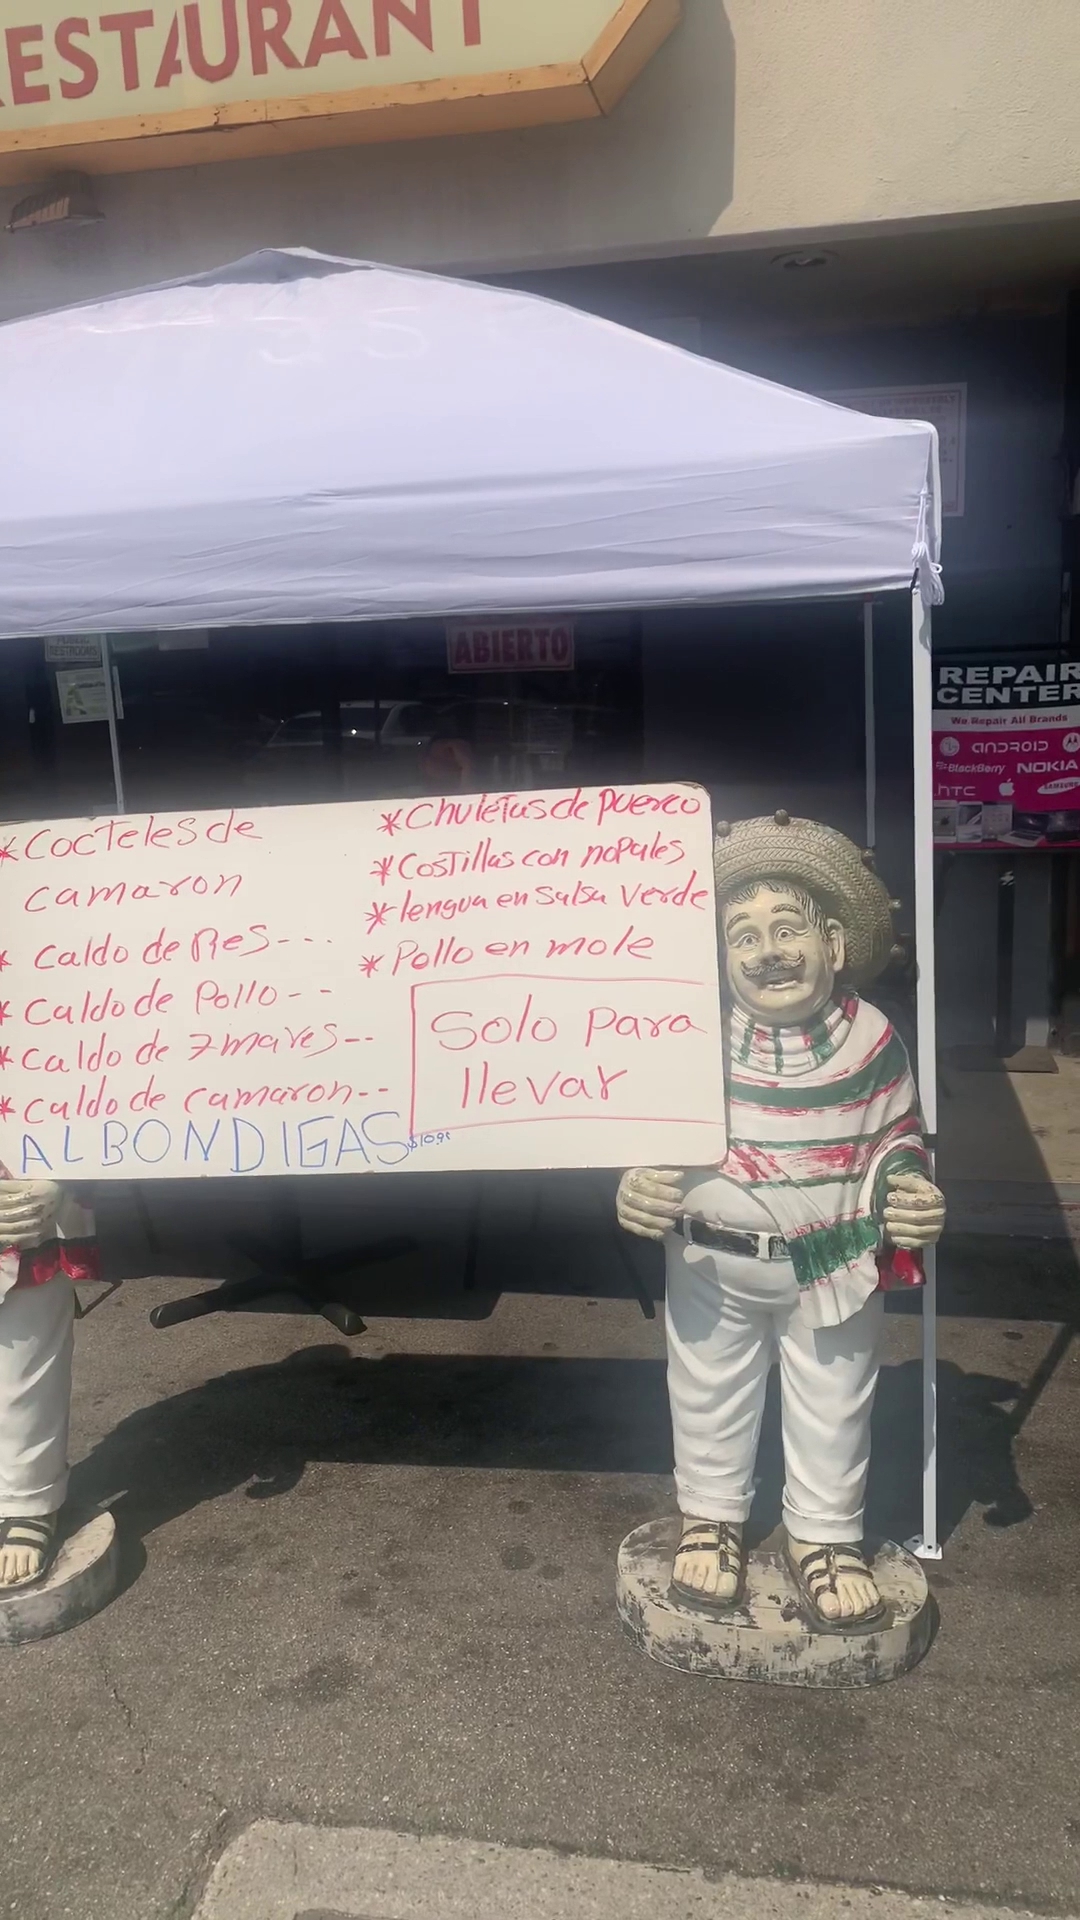 RESTAURANT
PUBLIC
RESTROOMS
ABIERTO
REPAIR
CENTER
We Repair All Brands
ANDROID
BlackBerry NOKIA
HTC SAMSUNG
*Cocteles de
camaron
* Caldo de Res---
* Caldo de Pollo--
* Caldo de 7 mares--
* Caldo de camaron--
ALBONDIGAS $10.99
*Chuletas de puerco
*Costillas con nopales
*lengua en Salsa Verde
*Pollo en mole
Solo para
llevar